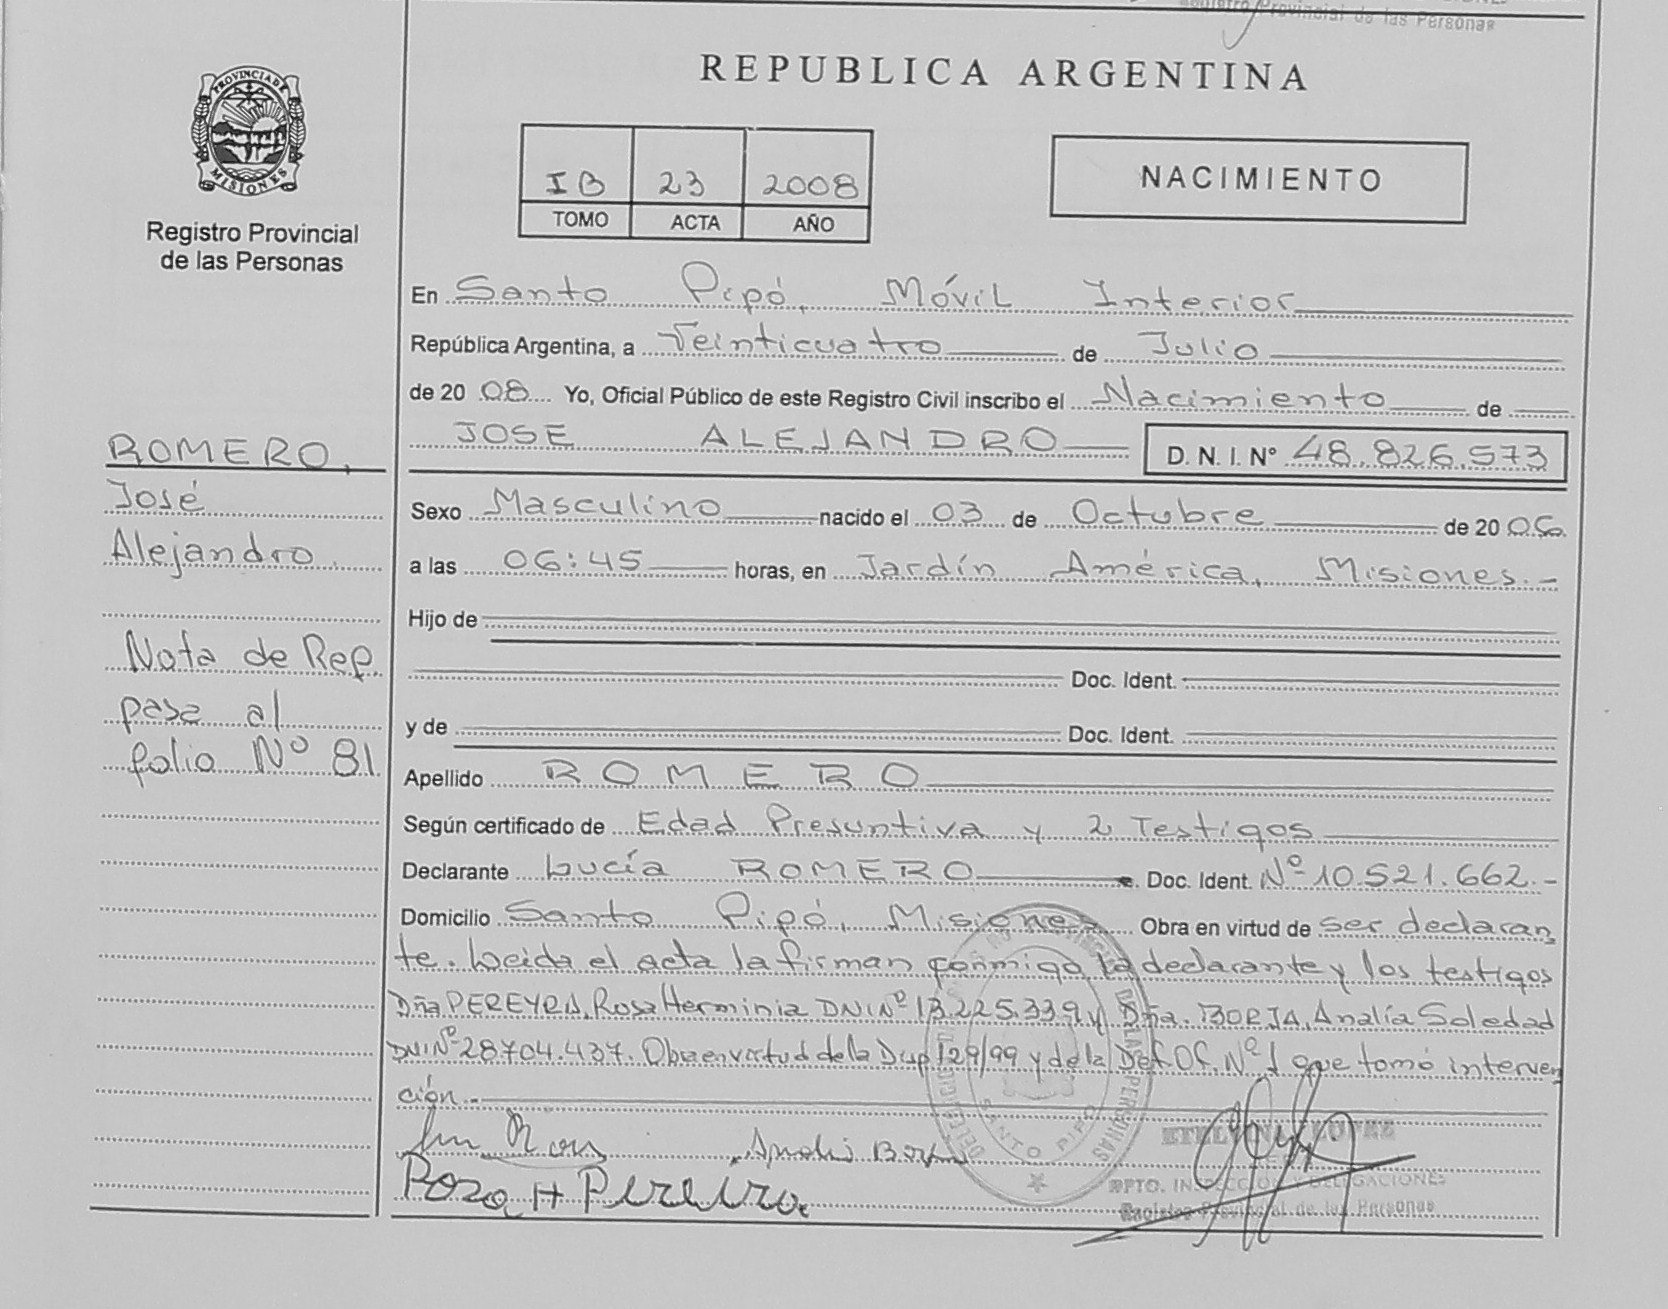 Registro Provincial de las Personas
PROVINCIA DE
MISIONES
Registro Provincial
de las Personas
REPUBLICA ARGENTINA
IB 23 2008
TOMO ACTA AÑO
NACIMIENTO
ROMERO,
José
Alejandro.
Nota de Rep.
pasa al
folio Nº 81
En Santo Pipó, Móvil Interior
República Argentina, a Veinticuatro de Julio
de 2008 Yo, Oficial Público de este Registro Civil inscribo el Nacimiento de
JOSE ALEJANDRO D. N. I. Nº 48.826.573
Sexo Masculino nacido el 03 de Octubre de 2006
a las 06:45 horas, en Jardín América, Misiones.-
Hijo de
Doc. Ident.
y de Doc. Ident.
Apellido ROMERO
Según certificado de Edad Presuntiva y 2 Testigos
Declarante Lucía ROMERO Doc. Ident. Nº 10.521.662.-
Domicilio Santo Pipó, Misiones Obra en virtud de ser declaran
te. Leida el acta la firman conmigo la declarante y los testigos
Dña PEREYRA, Rosa Herminia DNI Nº 13.225.339 y Dña. BORJA, Analía Soledad
DNI Nº 28704.437. Obra en virtud de la Disp 129/99 y de la Def. Of. Nº 1 que tomó interven
ción.-
Rosa H Pereira
SANTO PIPO
DPTO. INSPECCION Y DELEGACIONES
Registro Provincial de las Personas